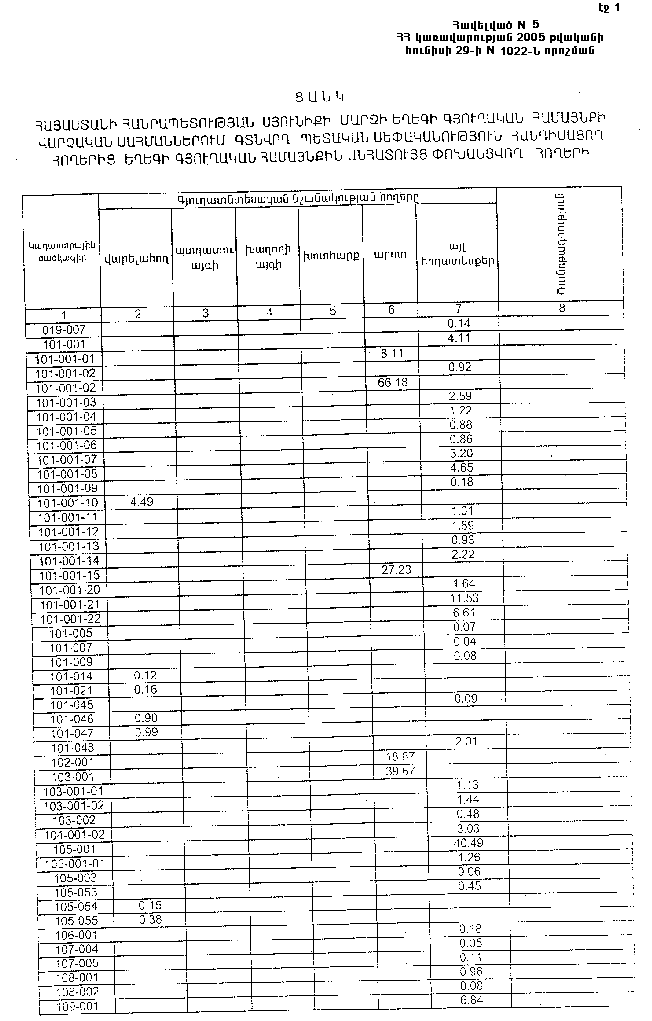 էջ 1
Հավելված N 5
ՀՀ կառավարության 2005 թվականի
հունիսի 29-ի N 1022-Ն որոշման
ՑԱՆԿ
ՀԱՅԱՍՏԱՆԻ ՀԱՆՐԱՊԵՏՈՒԹՅԱՆ ՍՅՈՒՆԻՔԻ ՄԱՐԶԻ ԵՂԵԳԻ ԳՅՈՒՂԱԿԱՆ ՀԱՄԱՅՆՔԻ
ՎԱՐՉԱԿԱՆ ՍԱՀՄԱՆՆԵՐՈՒՄ ԳՏՆՎՈՂ ՊԵՏԱԿԱՆ ՍԵՓԱԿԱՆՈՒԹՅՈՒՆ ՀԱՆԴԻՍԱՑՈՂ
ՀՈՂԵՐԻՑ ԵՂԵԳԻ ԳՅՈՒՂԱԿԱՆ ՀԱՄԱՅՆՔԻՆ ԱՆՀԱՏՈՒՅՑ ՓՈԽԱՆՑՎՈՂ ՀՈՂԵՐԻ
Գյուղատնտեսական նշանակության հողերը
Կադաստրային ծածկագիր վարելահող պտղատու այգի խաղողի այգի խոտհարք արոտ այլ հողատեսքեր Ծանոթություն
1 2 3 4 5 6 7 8
019-007 0.14
101-001 4.11
101-001-01 8.11
101-001-02 0.92
101-001-02 66.18
101-001-03 2.59
101-001-04 1.22
101-001-05 0.88
101-001-06 0.86
101-001-07 3.20
101-001-08 4.65
101-001-09 0.18
101-001-10 4.49
101-001-11
101-001-12
101-001-13 0.93
101-001-14 2.22
101-001-15 27.23
101-001-20 1.64
101-001-21 11.53
101-001-22 6.61
101-005 0.07
101-007 0.04
101-009 0.08
101-014 0.12
101-021 0.16
101-045 0.09
101-046 0.90
101-047 0.99
101-048
102-001
103-001 39.67
103-001-01 1.13
103-001-02 1.44
103-002 0.48
104-001-02 3.03
105-001 40.49
1.26
0.06
105-053 0.45
105-054 0.15
105-055 0.38
106-001 0.18
107-004 0.05
107-005 0.11
108-001 0.96
108-002 0.08
109-001 6.84